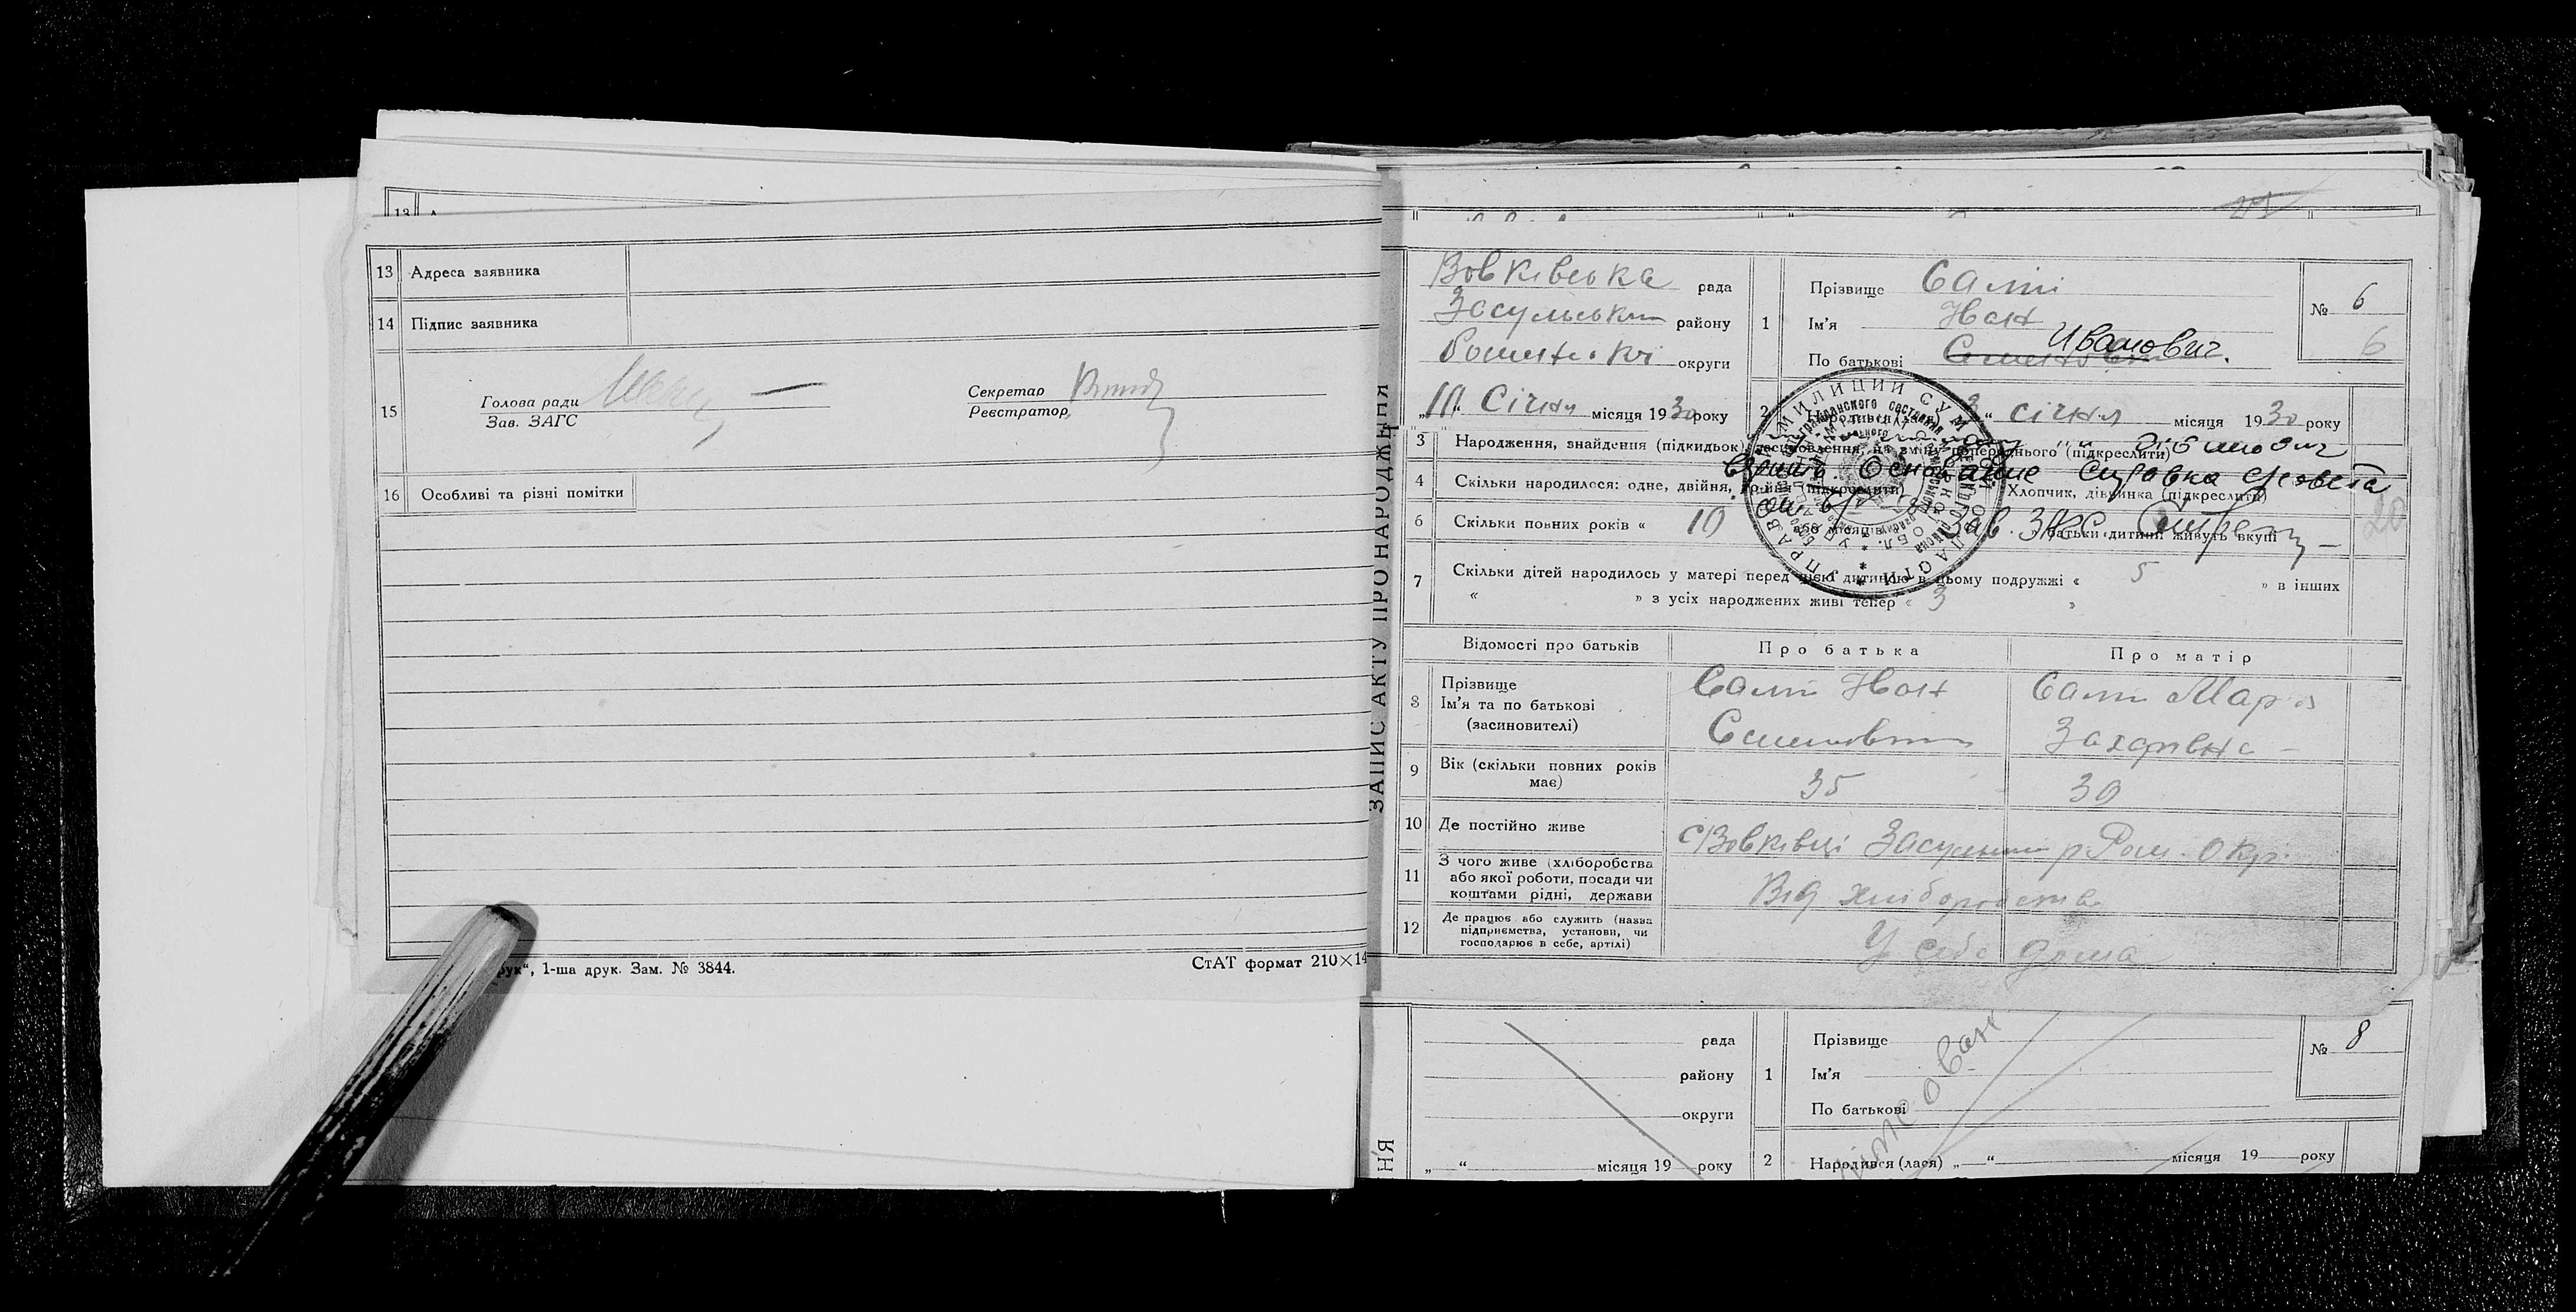 13 Адреса заявника
14 Підпис заявника
15 Голова ради
Зав. ЗАГС
Секретар
Реєстратор
16 Особливі та різні помітки
рук“, 1-ша друк. Зам. № 3844.
СтАТ формат 210×14
ЗАПИС АКТУ ПРО НАРОДЖЕННЯ
Вовківська рада
Засульськ району
округи
„10“ Січня місяця 1930 року
1 Прізвище Саті
Ім'я Іван
По батькові Иванович.
№ 6
6
2 Народився (лася) 3 “ січня місяця 1930 року
3 Народження, знайдення (підкидьок) попереднього (підкреслити)
Основание справка с/совета
4 Скільки народилося: одне, двійня, трійня (підкреслити)
Хлопчик, дівчинка (підкреслити)
6 Скільки повних років « 10 або місяців батьки дитини живуть вкупі
Зав. ЗАГС
20
7 Скільки дітей народилось у матері перед цією дитиною в цьому подружжі « 5 » в інших
« » з усіх народжених живі тепер « 3 »
Відомості про батьків
Про батька
Про матір
8 Прізвище
Ім'я та по батькові
(засиновителі)
Саті Іван
Семенович
Саті Мар я
Захарівна
9 Вік (скільки повних років має) 35 30
10 Де постійно живе с Вовківці Засульськ р. Ром. Окр.
11 З чого живе (хліборобства
або якої роботи, посади чи
коштами рідні, держави
Від хліборобства
12 Де працює або служить (назва
підприємства, установи, чи
господарює в себе, артілі)
У себе дома
НЯ
рада
району
округи
„ “ місяця 19 року
1 Прізвище
Ім'я
По батькові
№ 8
2 Народився (лася) „ “ місяця 19 року